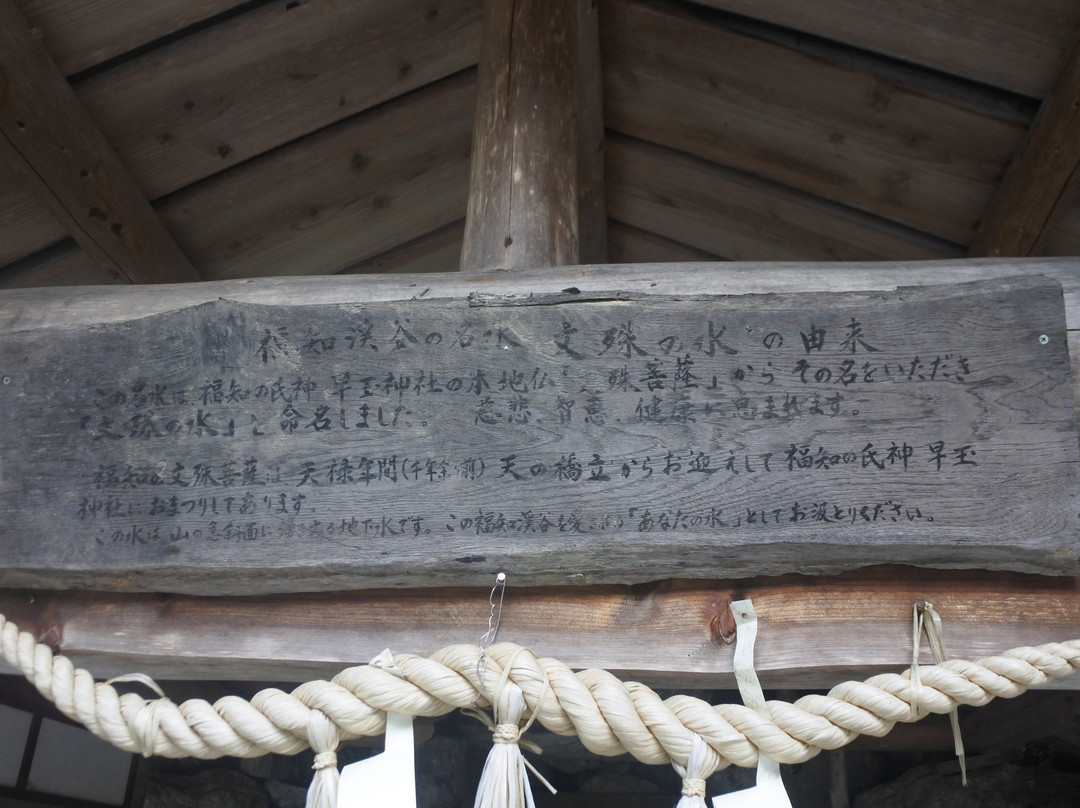 福知渓谷の名水 文殊の水の由来
この名水は、福知の氏神 早玉神社の本地仏「 殊菩薩」から その名をいただき
「文殊の水」と命名しました。 慈悲、智恵、健康に恵まれます。
福知の文殊菩薩は 天禄年間(千年余り前) 天の橋立からお迎えして 福知の氏神 早玉
神社におまつりしてあります。
この水は 山の急斜面に 地下水です。この福知渓谷を愛される「あなたの水」としてお汲とりください。